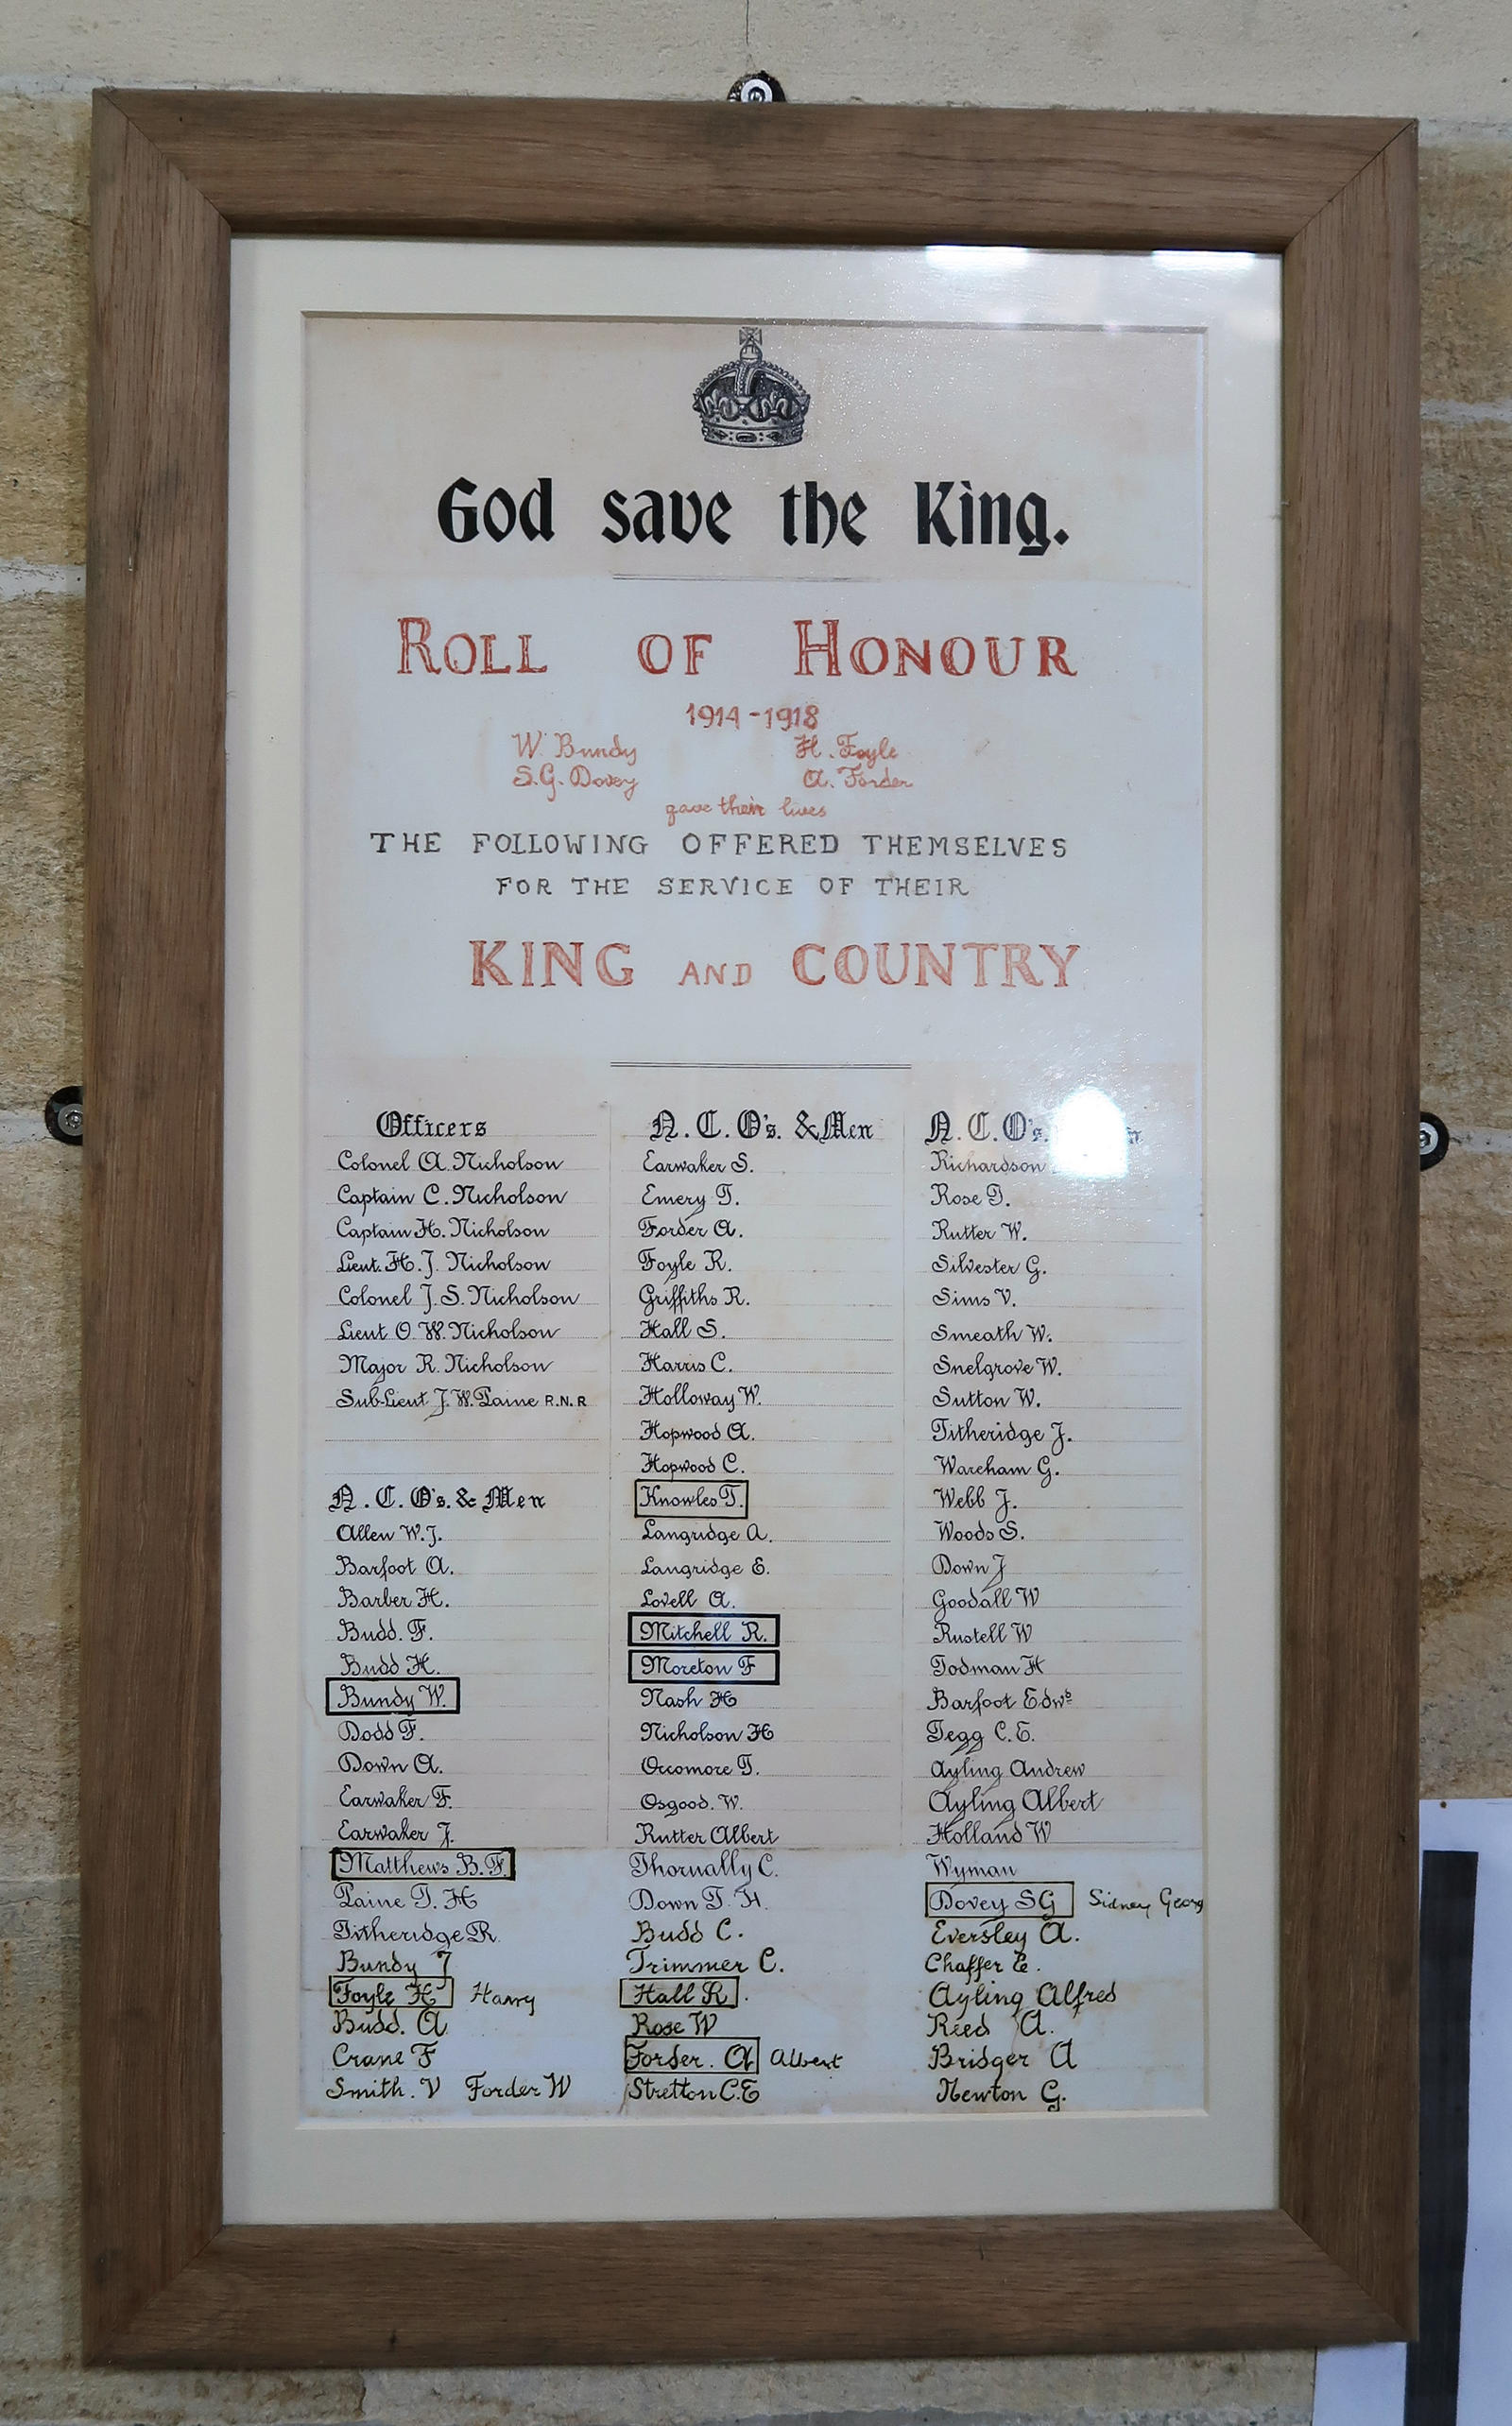 God save the King.
ROLL OF HONOUR
1914-1918
W. Bundy H. Foyle
S.G. Dovey A. Forder
gave their lives
THE FOLLOWING OFFERED THEMSELVES
FOR THE SERVICE OF THEIR
KING AND COUNTRY
Officers
Colonel A. Nicholson
Captain C. Nicholson
Captain H. Nicholson
Lieut. H. J. Nicholson
Colonel J. S. Nicholson
Lieut O. W. Nicholson
Major R. Nicholson
Sub-Lieut J. W. Paine R.N.R
N.C.O's. & Men
Allen W. J.
Barfoot A.
Barber H.
Budd. F.
Budd H.
Bundy W.
Dodd F.
Down A.
Earwaker F.
Earwaker J.
Matthews B. F.
Paine T. H
Titheridge R.
Bundy T
Foyle H Harry
Budd. A
Crane F
Smith. V Forder W
N.C.O's. & Men
Earwaker S.
Emery T.
Forder A.
Foyle R.
Griffiths R.
Hall S.
Harris C.
Holloway W.
Hopwood A.
Hopwood C.
Knowles T.
Langridge A.
Langridge E.
Lovell A.
Mitchell R.
Moreton F
Nash H
Nicholson H
Occomore T.
Osgood. W.
Rutter Albert
Thornally C.
Down T. H.
Budd C.
Trimmer C.
Hall R.
Rose W
Forder. A Albert
Stretton C.E
N.C.O's.
Richardson
Rose T.
Rutter W.
Silvester G.
Sims V.
Smeath W.
Snelgrove W.
Sutton W.
Titheridge J.
Wareham G.
Webb J.
Woods S.
Down J
Goodall W
Rustell W
Todman H
Barfoot Edwd
Tegg C. E.
Ayling Andrew
Ayling Albert
Holland W
Wyman
Dovey SG Sidney Georg
Eversley A.
Chaffer E.
Ayling Alfred
Reed A.
Bridger A
Newton G.